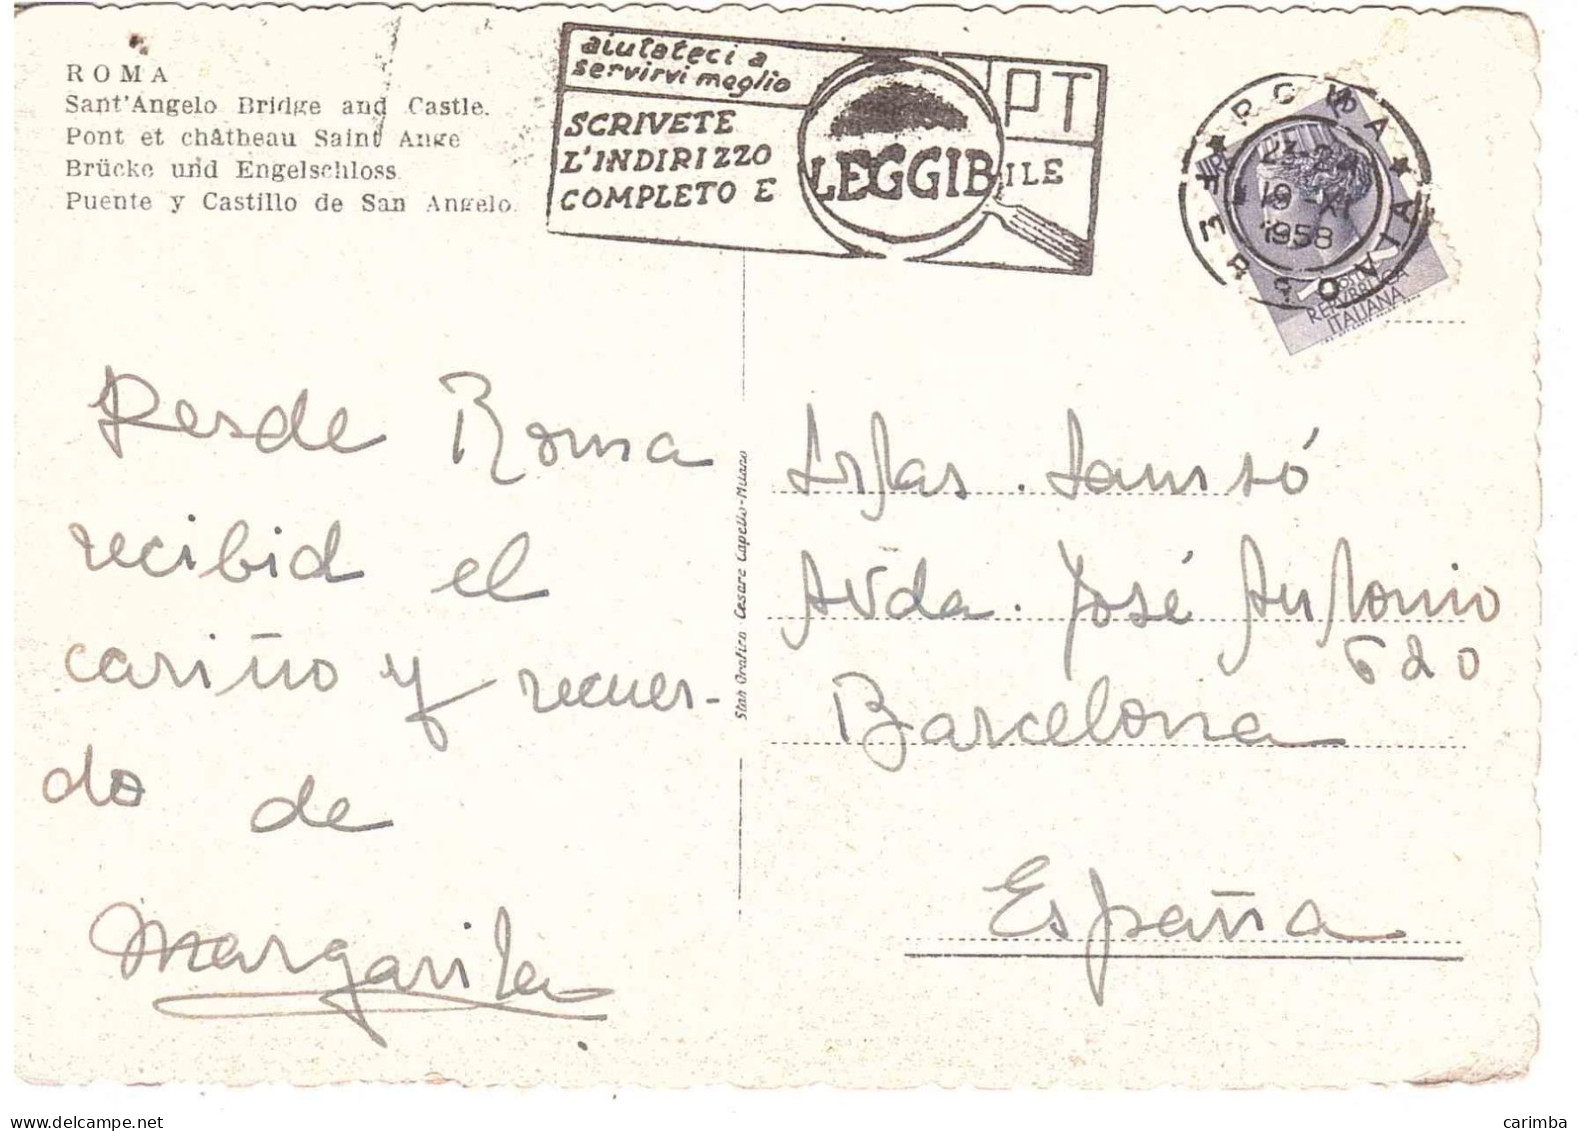 ROMA
Sant'Angelo Bridge and Castle.
Pont et châtheau Saint Ange
Brücke und Engelschloss
Puente y Castillo de San Angelo.
aiutateci a
servirvi meglio
SCRIVETE
L'INDIRIZZO
COMPLETO E
LEGGIBILE
PT
ROMA
FERROVIA
1958
REPVBBLICA
ITALIANA
Desde Roma
recibid el
cariño y recuer-
do de
Margarita
Stab. Grafico Cesare Capello-Milano
Srtas. Samsó
Avda. José Antonio
620
Barcelona
España
carimba